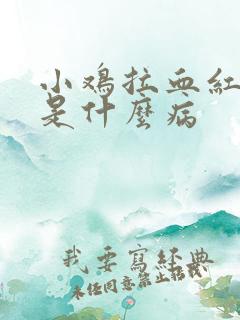 小鸡拉血红
是什麼病
我要寫經典
未经同意禁止转载